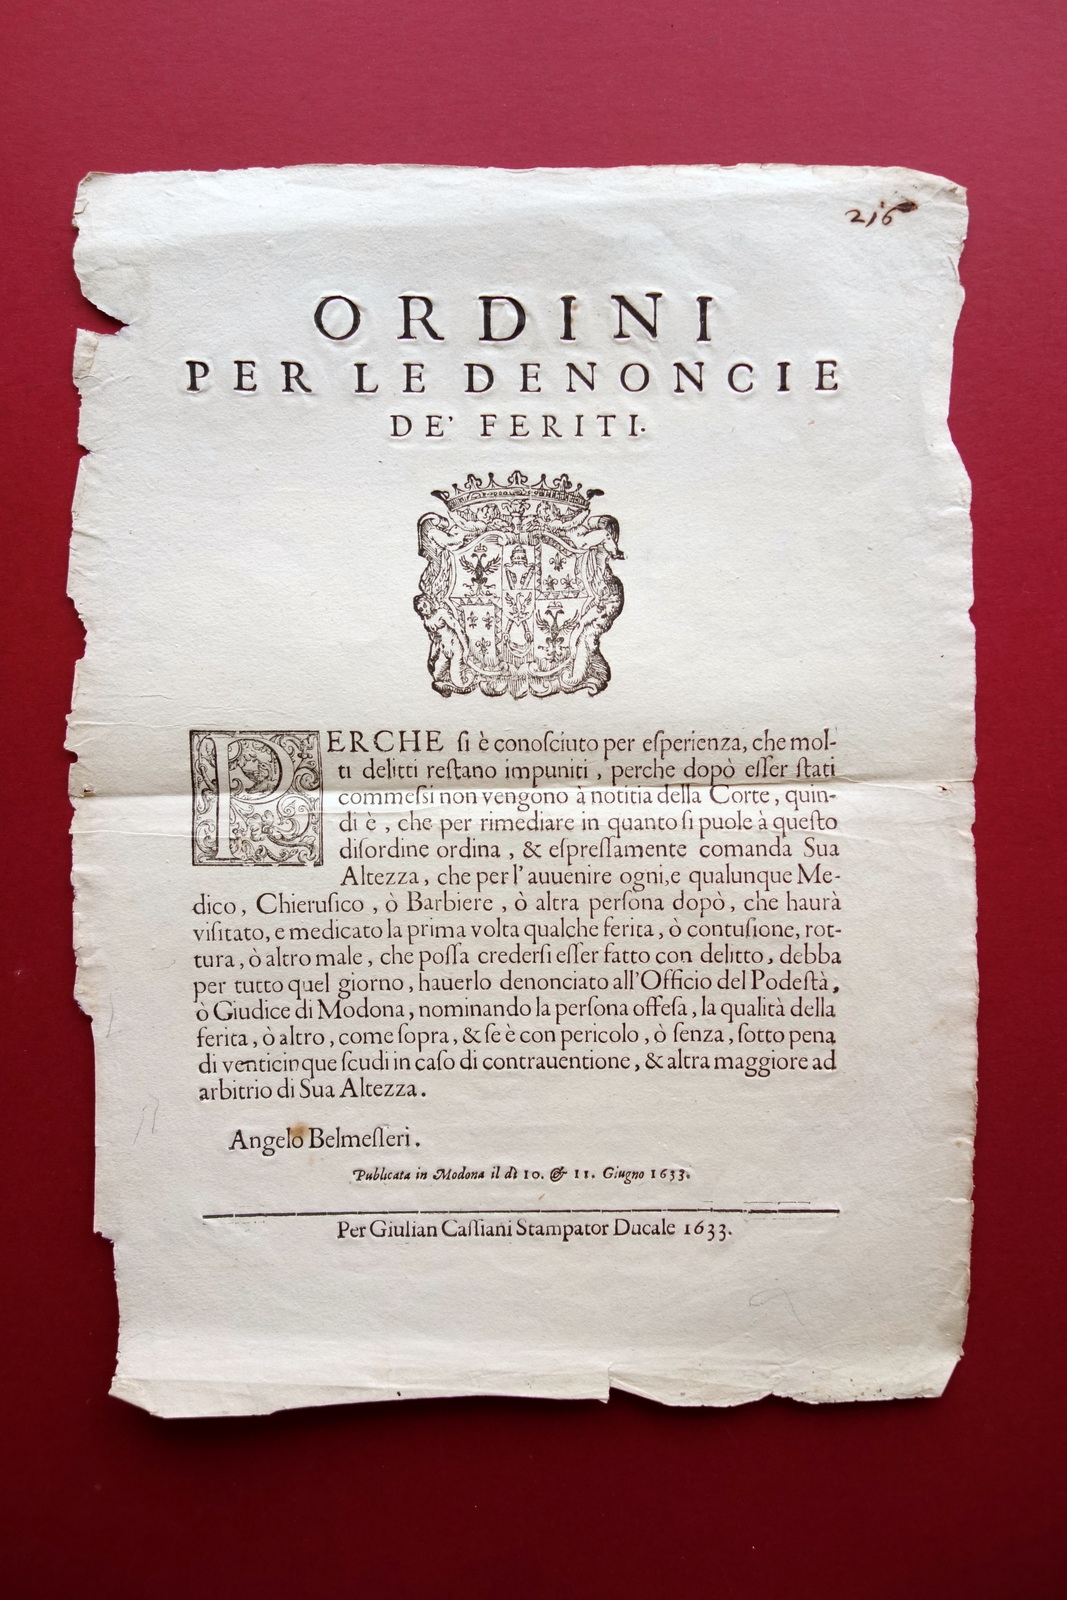 216
ORDINI
PER LE DENONCIE
DE' FERITI.
PERCHE ſi è conoſciuto per eſperienza, che mol-
ti delitti reſtano impuniti, perche dopò eſſer ſtati
commeſsi non vengono à notitia della Corte, quin-
di è, che per rimediare in quanto ſi puole à queſto
diſordine ordina, & eſpreſſamente comanda Sua
Altezza, che per l'auuenire ogni, e qualunque Me-
dico, Chieruſico, ò Barbiere, ò altra perſona dopò, che haurà
viſitato, e medicato la prima volta qualche ferita, ò contuſione, rot-
tura, ò altro male, che poſſa crederſi eſſer fatto con delitto, debba
per tutto quel giorno, hauerlo denonciato all'Officio del Podeſtà,
ò Giudice di Modona, nominando la perſona offeſa, la qualità della
ferita, ò altro, come ſopra, & ſe è con pericolo, ò ſenza, ſotto pena
di venticinque ſcudi in caſo di contrauentione, & altra maggiore ad
arbitrio di Sua Altezza.
Angelo Belmeſſeri.
Publicata in Modona il dì 10. & 11. Giugno 1633.
Per Giulian Caſſiani Stampator Ducale 1633.